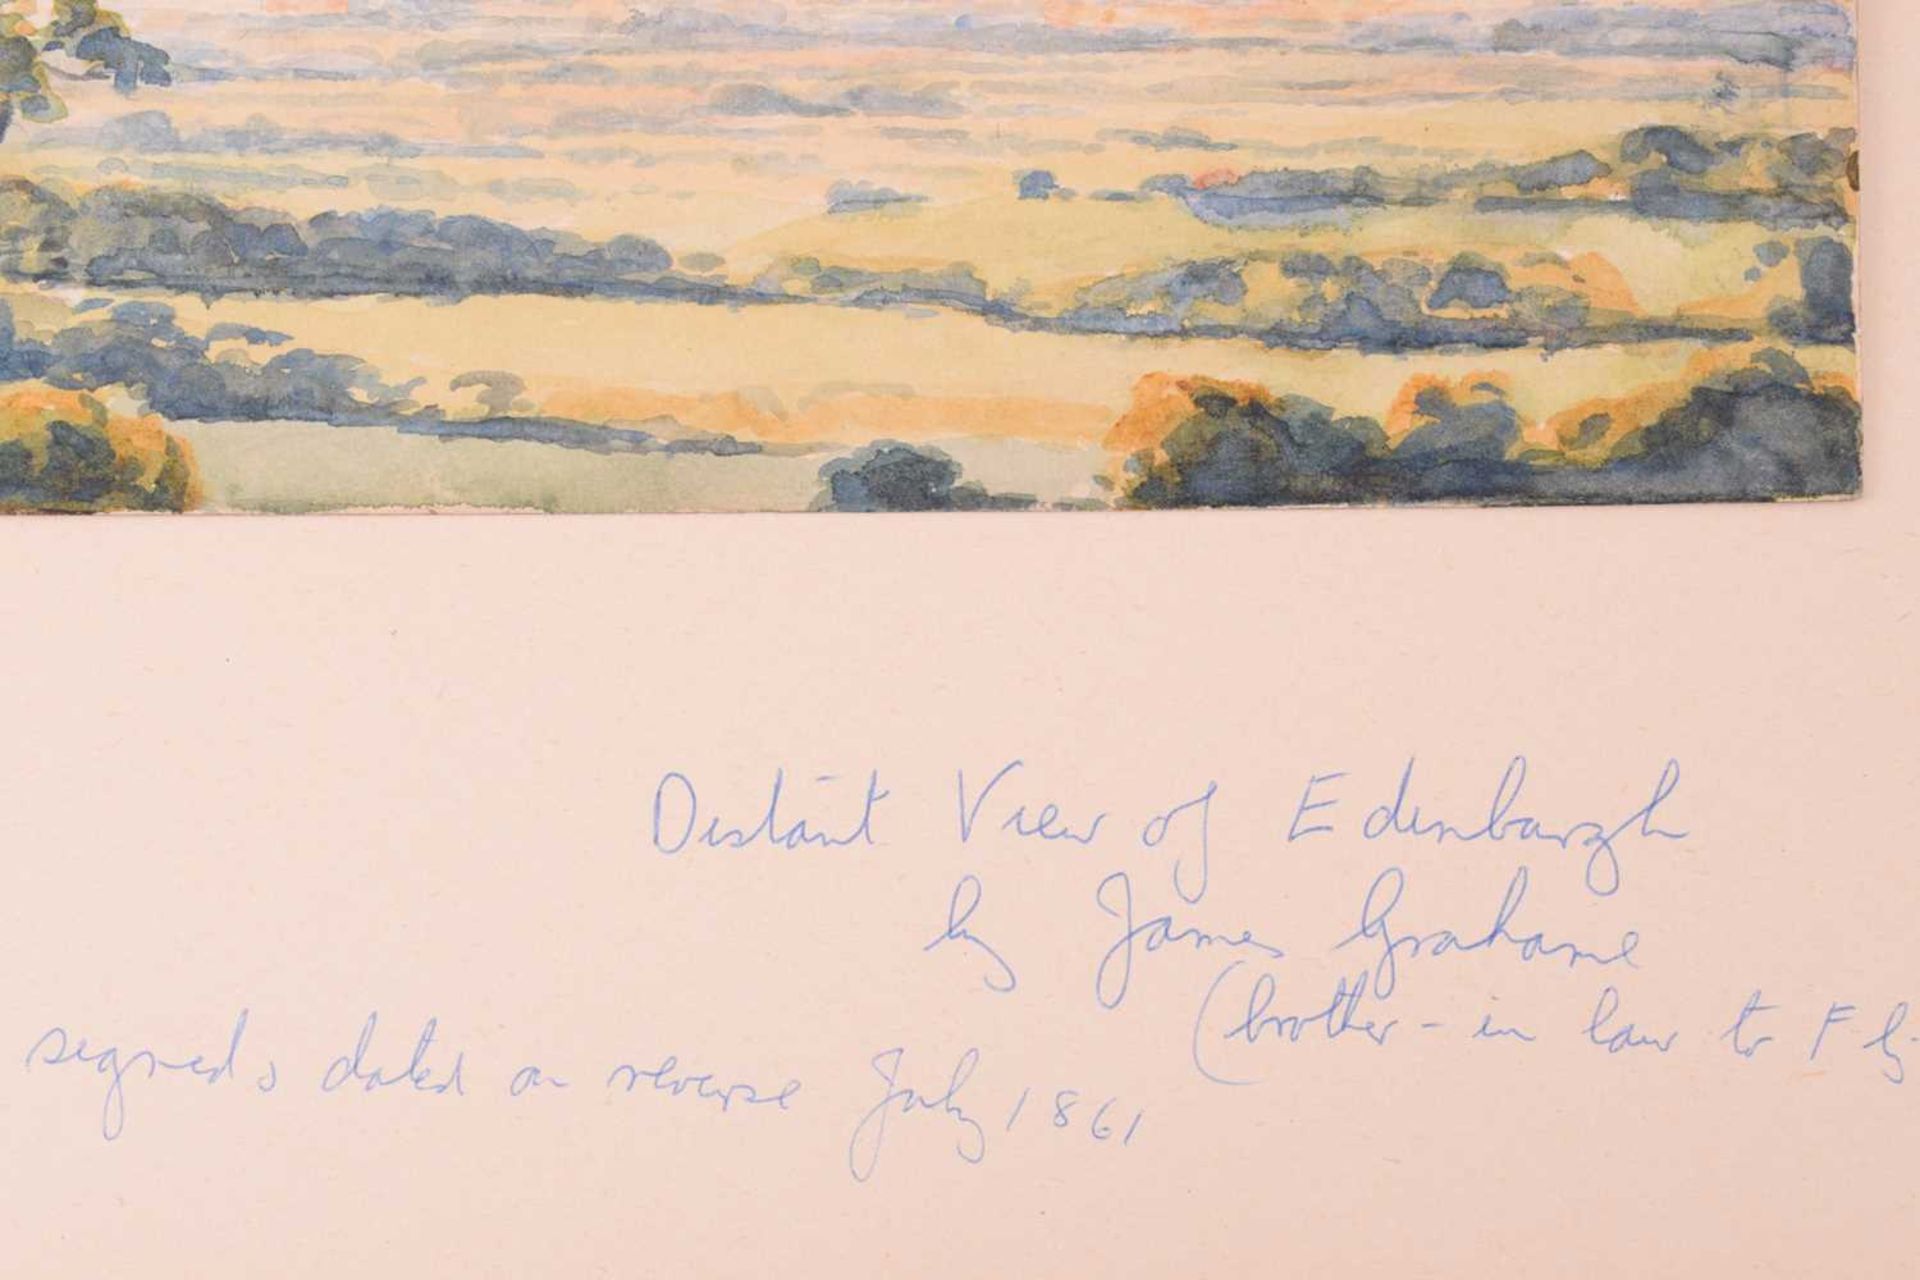 Distant View of Edinburgh
by James Grahame
(brother-in law to F
signed & dated on reverse July 1861